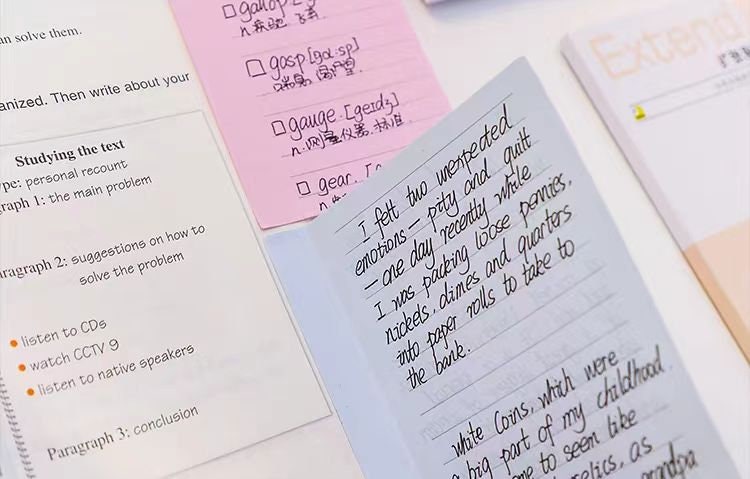 an solve them.
anized. Then write about your
Studying the text
ype: personal recount
graph 1: the main problem
aragraph 2: suggestions on how to
solve the problem
listen to CDs
watch CCTV 9
listen to native speakers
Paragraph 3: conclusion
gallop
gasp [gɑ:sp]
gauge [geidʒ]
n. 测量仪器. 标准.
gear
I felt two unexpected
emotions — pity and guilt
— one day recently while
I was packing loose pennies,
nickels, dimes and quarters
into paper rolls to take to
the bank.
white Coins, which were
a big part of my childhood
me to seem like
relics, as
grandpa
Extend